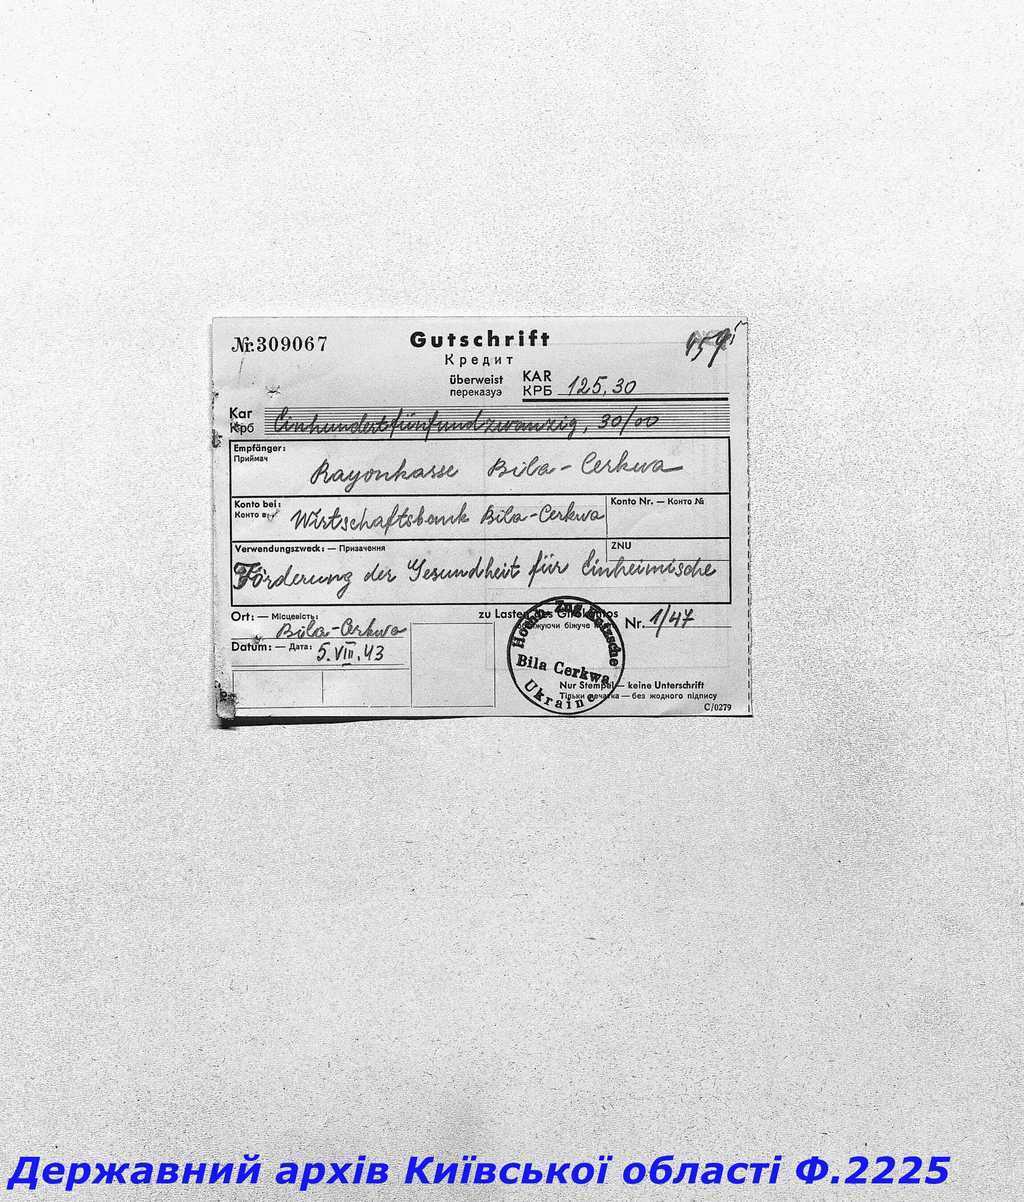 Nr. 309067
Gutschrift
Кредит
überweist
переказуэ
KAR
КРБ
125,30
Kar
Крб
Einhundertfünfundzwanzig, 30/00
Empfänger:
Приймач
Rayonkasse Bila-Cerkwa
Konto bei:
Конто в:
Wirtschaftsbank Bila-Cerkwa
Konto Nr. — Конто №
Verwendungszweck: — Призачення
ZNU
Förderung der Gesundheit für Einheimische
Ort: — Місцевість:
Bila-Cerkwa
zu Lasten des Girokontos
біжуче
Nr. 1/47
Datum: — Дата:
5.VIII.43
Zug
Bila Cerkwa
Ukraine
Nur Stempel — keine Unterschrift
Тільки печатка — без жодного підпису
C/0279
Державний архів Київської області Ф.2225